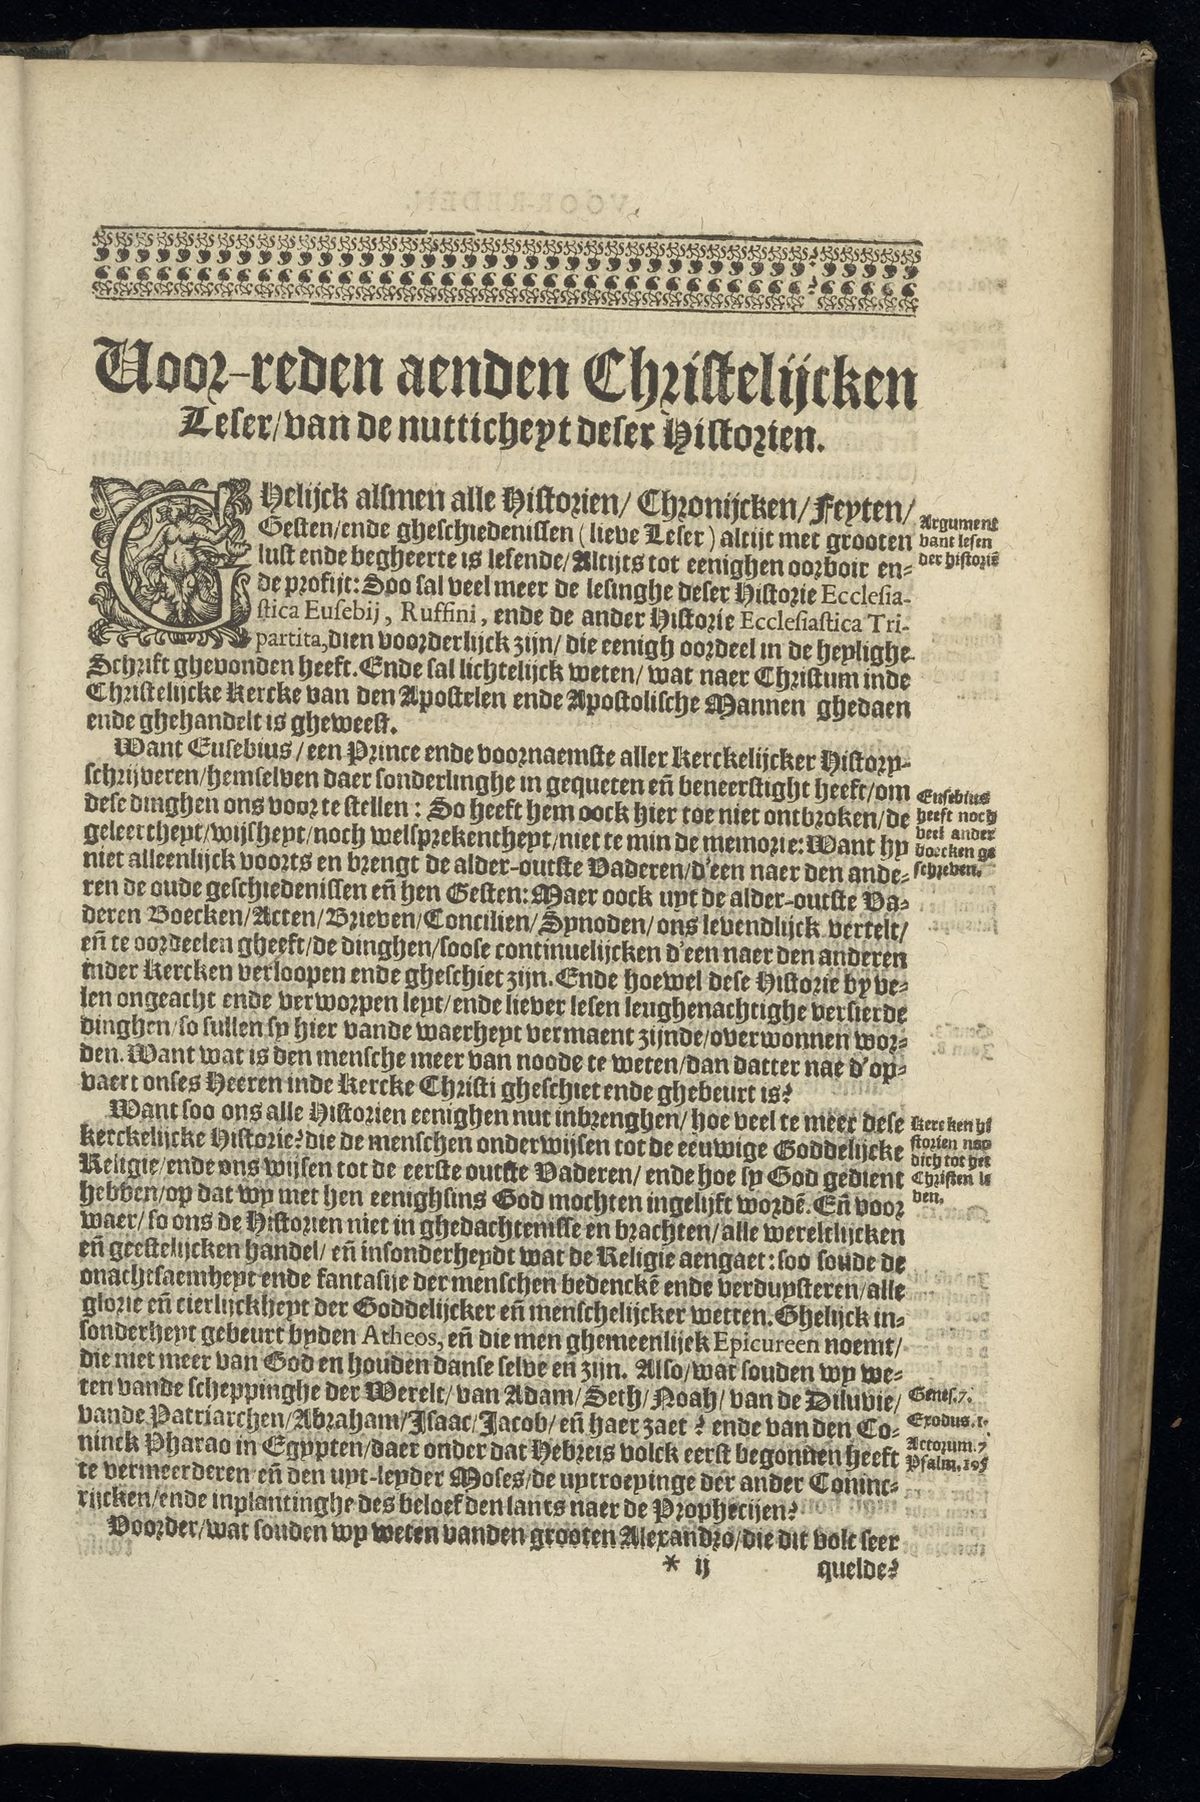 Voor-reden aenden Christelijcken
Leser/van de nutticheyt deser Historien.
GHelijck alsmen alle Historien/ Chronijcken/ Feyten/
Gesten/ende gheschiedenissen (lieve Leser) altijt met grooten
lust ende begheerte is lesende/Altijts tot eenighen oorboir en-
de profijt: Soo sal veel meer de lesinghe deser Historie Ecclesia-
stica Eusebij, Ruffini, ende de ander Historie Ecclesiastica Tri-
partita, dien voorderlijck zijn/ die eenigh oordeel in de heylighe
Schrift ghevonden heeft. Ende sal lichtelijck weten/ wat naer Christum inde
Christelijcke Kercke van den Apostelen ende Apostolische Mannen ghedaen
ende ghehandelt is gheweest.
Argument
vant lesen
der historiē
Want Eusebius/een Prince ende voornaemste aller Kerckelijcker History-
schrijveren/hemselven daer sonderlinghe in gequeten eñ beneerstight heeft/om
dese dinghen ons voor te stellen: So heeft hem oock hier toe niet ontbroken/de
geleertheyt/wijsheyt/noch welsprekentheyt/niet te min de memorie: Want hy
niet alleenlijck voorts en brengt de alder-outste Vaderen/d'een naer den ande-
ren de oude geschiedenissen eñ hen Gesten: Maer oock uyt de alder-outste Va-
deren Boecken/Acten/Brieven/Concilien/Synoden/ons levendlijck vertelt/
eñ te oordeelen gheeft/de dinghen/soose continuelijcken d'een naer den anderen
inder Kercken verloopen ende gheschiet zijn. Ende hoewel dese Historie by ve-
len ongeacht ende verworpen leyt/ende liever lesen leughenachtighe versierde
dinghen/so sullen sy hier vande waerheyt vermaent zijnde/overwonnen wor-
den. Want wat is den mensche meer van noode te weten/dan datter nae d'op-
vaert onses Heeren inde Kercke Christi gheschiet ende ghebeurt is?
Eusebius
heeft noch
veel ander
boecken ge
schreven.
Want soo ons alle Historien eenighen nut inbrenghen/hoe veel te meer dese
kerckelijcke Historie? die de menschen onderwijsen tot de eeuwige Goddelijcke
Religie/ende ons wijsen tot de eerste outste Vaderen/ ende hoe sy God gedient
hebben/op dat wy met hen eenighsins God mochten ingelijft wordē. Eñ voor
waer/so ons de Historien niet in ghedachtenisse en brachten/alle wereltlijcken
eñ geestelijcken handel/ eñ insonderheydt wat de Religie aengaet: soo soude de
onachtsaemheyt ende fantasije der menschen bedenckē ende verduysteren/alle
glorie eñ cierlijckheyt der Goddelijcker eñ menschelijcker wetten. Ghelijck in-
sonderheyt gebeurt byden Atheos, eñ die men ghemeenlijck Epicureen noemt/
die niet meer van God en houden danse selve en zijn. Also/wat souden wy we-
ten vande scheppinghe der Werelt/van Adam/Seth/Noah/van de Diluvie/
vande Patriarchen/Abraham/Isaac/Jacob/eñ haer zaet? ende van den Co-
ninck Pharao in Egypten/daer onder dat Hebreis volck eerst begonnen heeft
te vermeerderen eñ den uyt-leyder Moses/de uytroepinge der ander Coninc-
rijcken/ende inplantinghe des beloefden lants naer de Prophecijen?
Kercken hi
storien noo
dich tot het
Christen le
ven.
Genes.7.
Exodus.1.
Actorum.7
Psalm.105
Voorder/wat souden wy weten vanden grooten Alexandro/die dit volc seer
* ij
quelde?